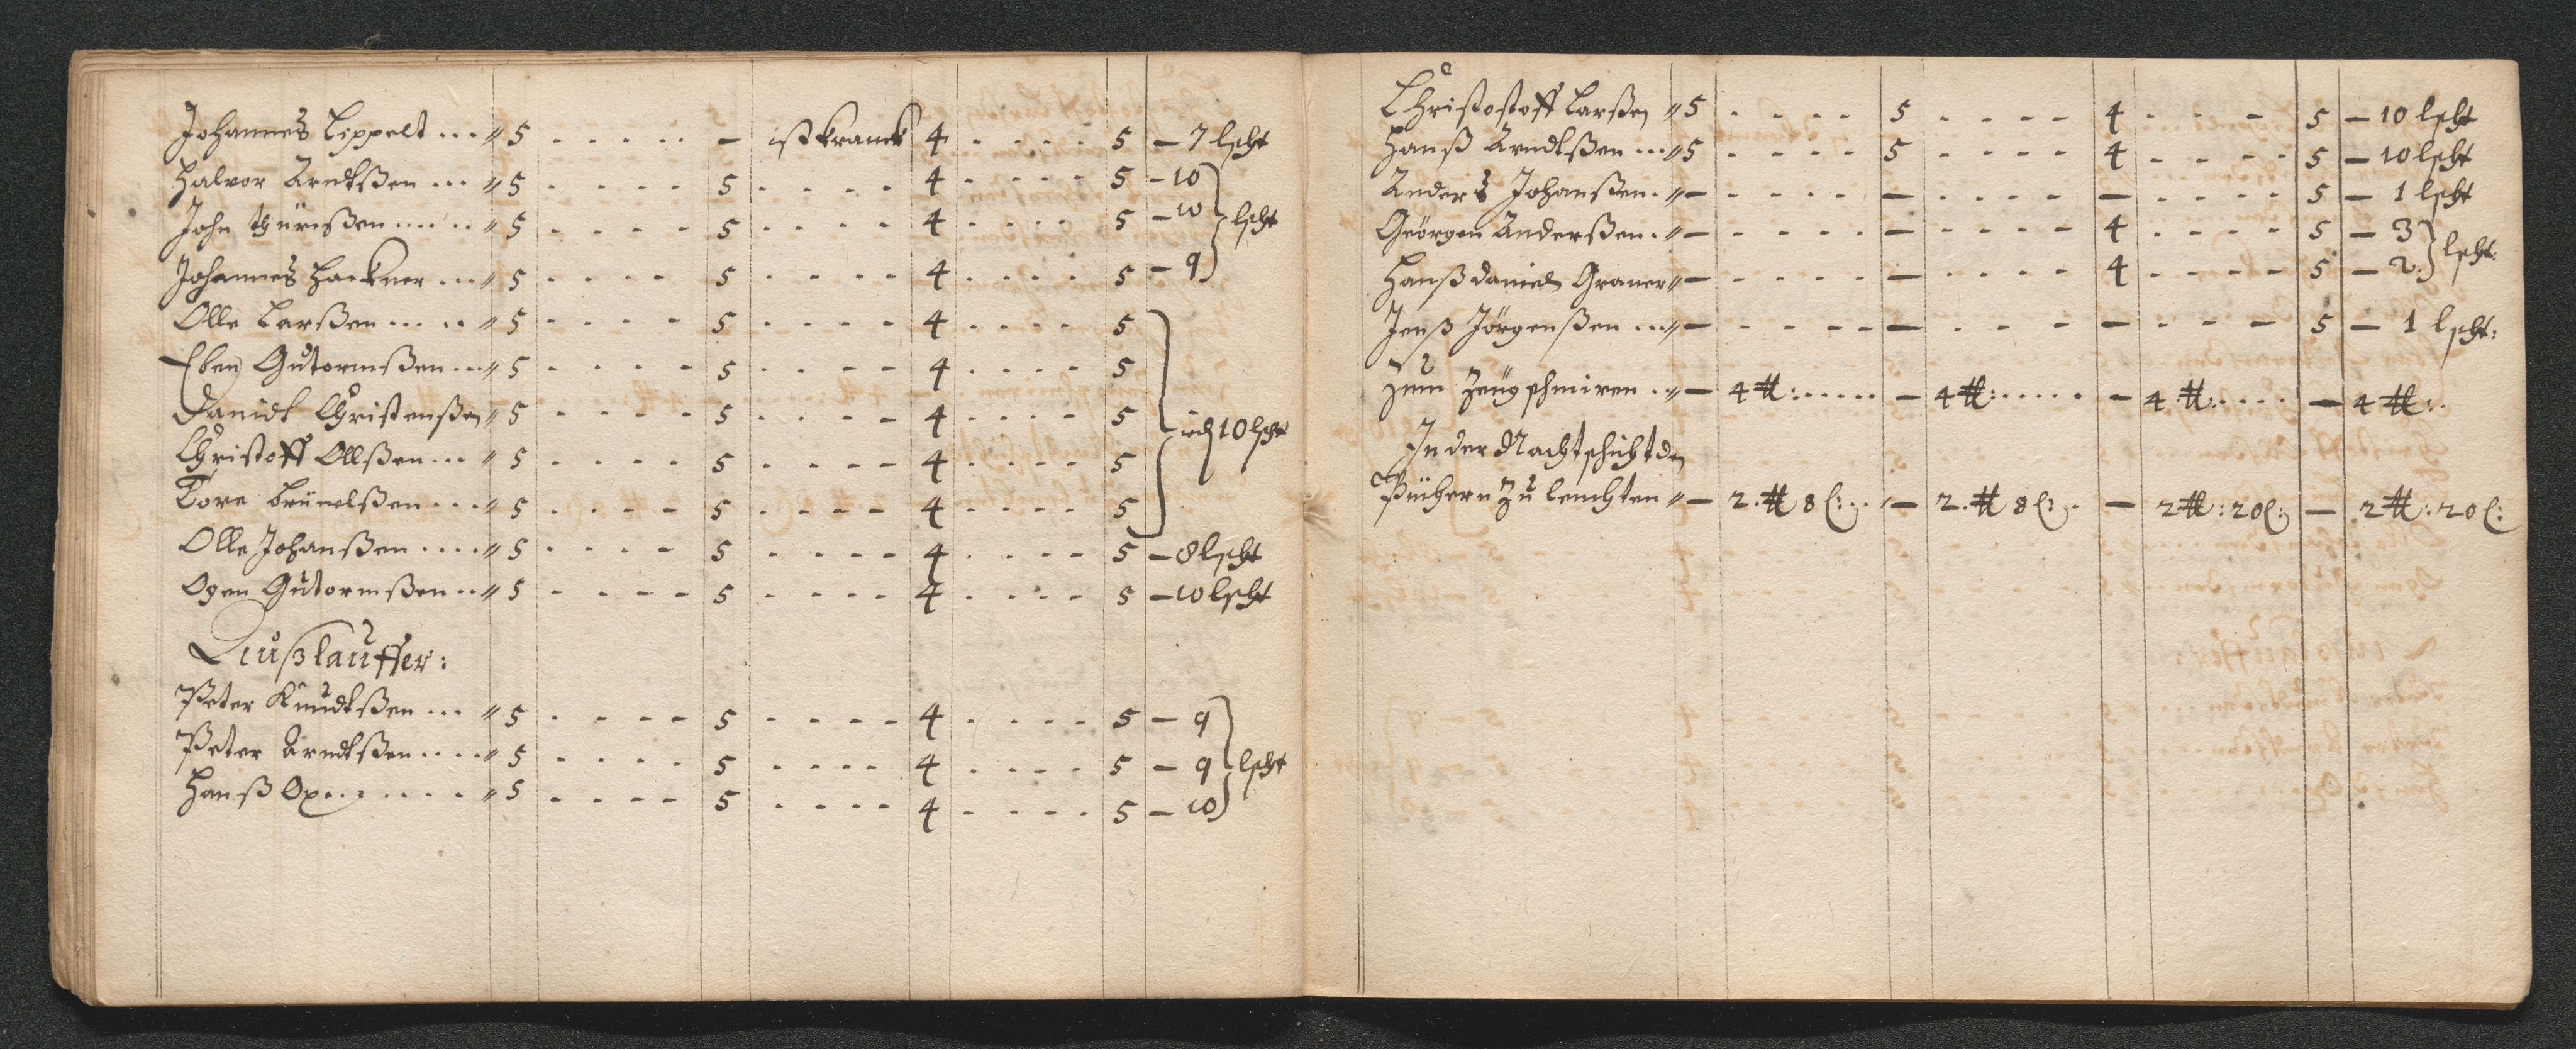 Johannes Lippelt ... " 5 - - - - - - ist kranck 4 - - - - 5 - 7 lscht
Halvor Arndtßen ... " 5 - - - - 5 - - - - 4 - - - - 5 - 10
John Thürißen ..... " 5 - - - - 5 - - - - 4 - - - - 5 - 10 lscht
Johannes Hackner ... " 5 - - - - 5 - - - - 4 - - - - 5 - 9
Olle Larßen ..... " 5 - - - - 5 - - - - 4 - - - - 5
Eben Gutormßen ... " 5 - - - - 5 - - - - 4 - - - - 5
Danidt Christenßen " 5 - - - - 5 - - - - 4 - - - - 5 10 lscht
Christoff Ollßen ... " 5 - - - - 5 - - - - 4 - - - - 5
Tore ... " 5 - - - - 5 - - - - 4 - - - - 5
Olle Johanßen .... " 5 - - - - 5 - - - - 4 - - - - 5 - 8 lscht
Ogen Gutormßen .. " 5 - - - - 5 - - - - 4 - - - - 5 - 10 lscht
Außlauffer:
Peter Knudtßen ... " 5 - - - - 5 - - - - 4 - - - - 5 - 9
Peter Arndtßen .... " 5 - - - - 5 - - - - 4 - - - - 5 - 9 lscht
Hanß Ox..... " 5 - - - - 5 - - - - 4 - - - - 5 - 10
Christostoff Larßen " 5 - - - - 5 - - - - 4 - - - 5 - 10 lscht
Hanß Arndtßen ... " 5 - - - - 5 - - - - 4 - - - - 5 - 10 lscht
Anders Johanßen . " - - - - - - - - - - - - - - - 5 - 1 lscht
Geörgen Anderßen . " - - - - - - - - - - 4 - - - - 5 - 3 lscht:
Hanß Daniel Graner " - - - - - - - - - - 4 - - - - 5 - 2.
Jenß Jörgenßen ... " - - - - - - - - - - - - - - 5 - 1 lscht:
zum Zeug schmiren .. " - 4 ℔: ..... - 4 ℔: ..... - 4 ℔: .... - 4 ℔: .
In der Nachtschicht den
Püchern zu leuchten " - 2. ℔ 8 l: .. - 2. ℔ 8 l: . - 2 ℔: 20 l: - 2 ℔: 20 l: